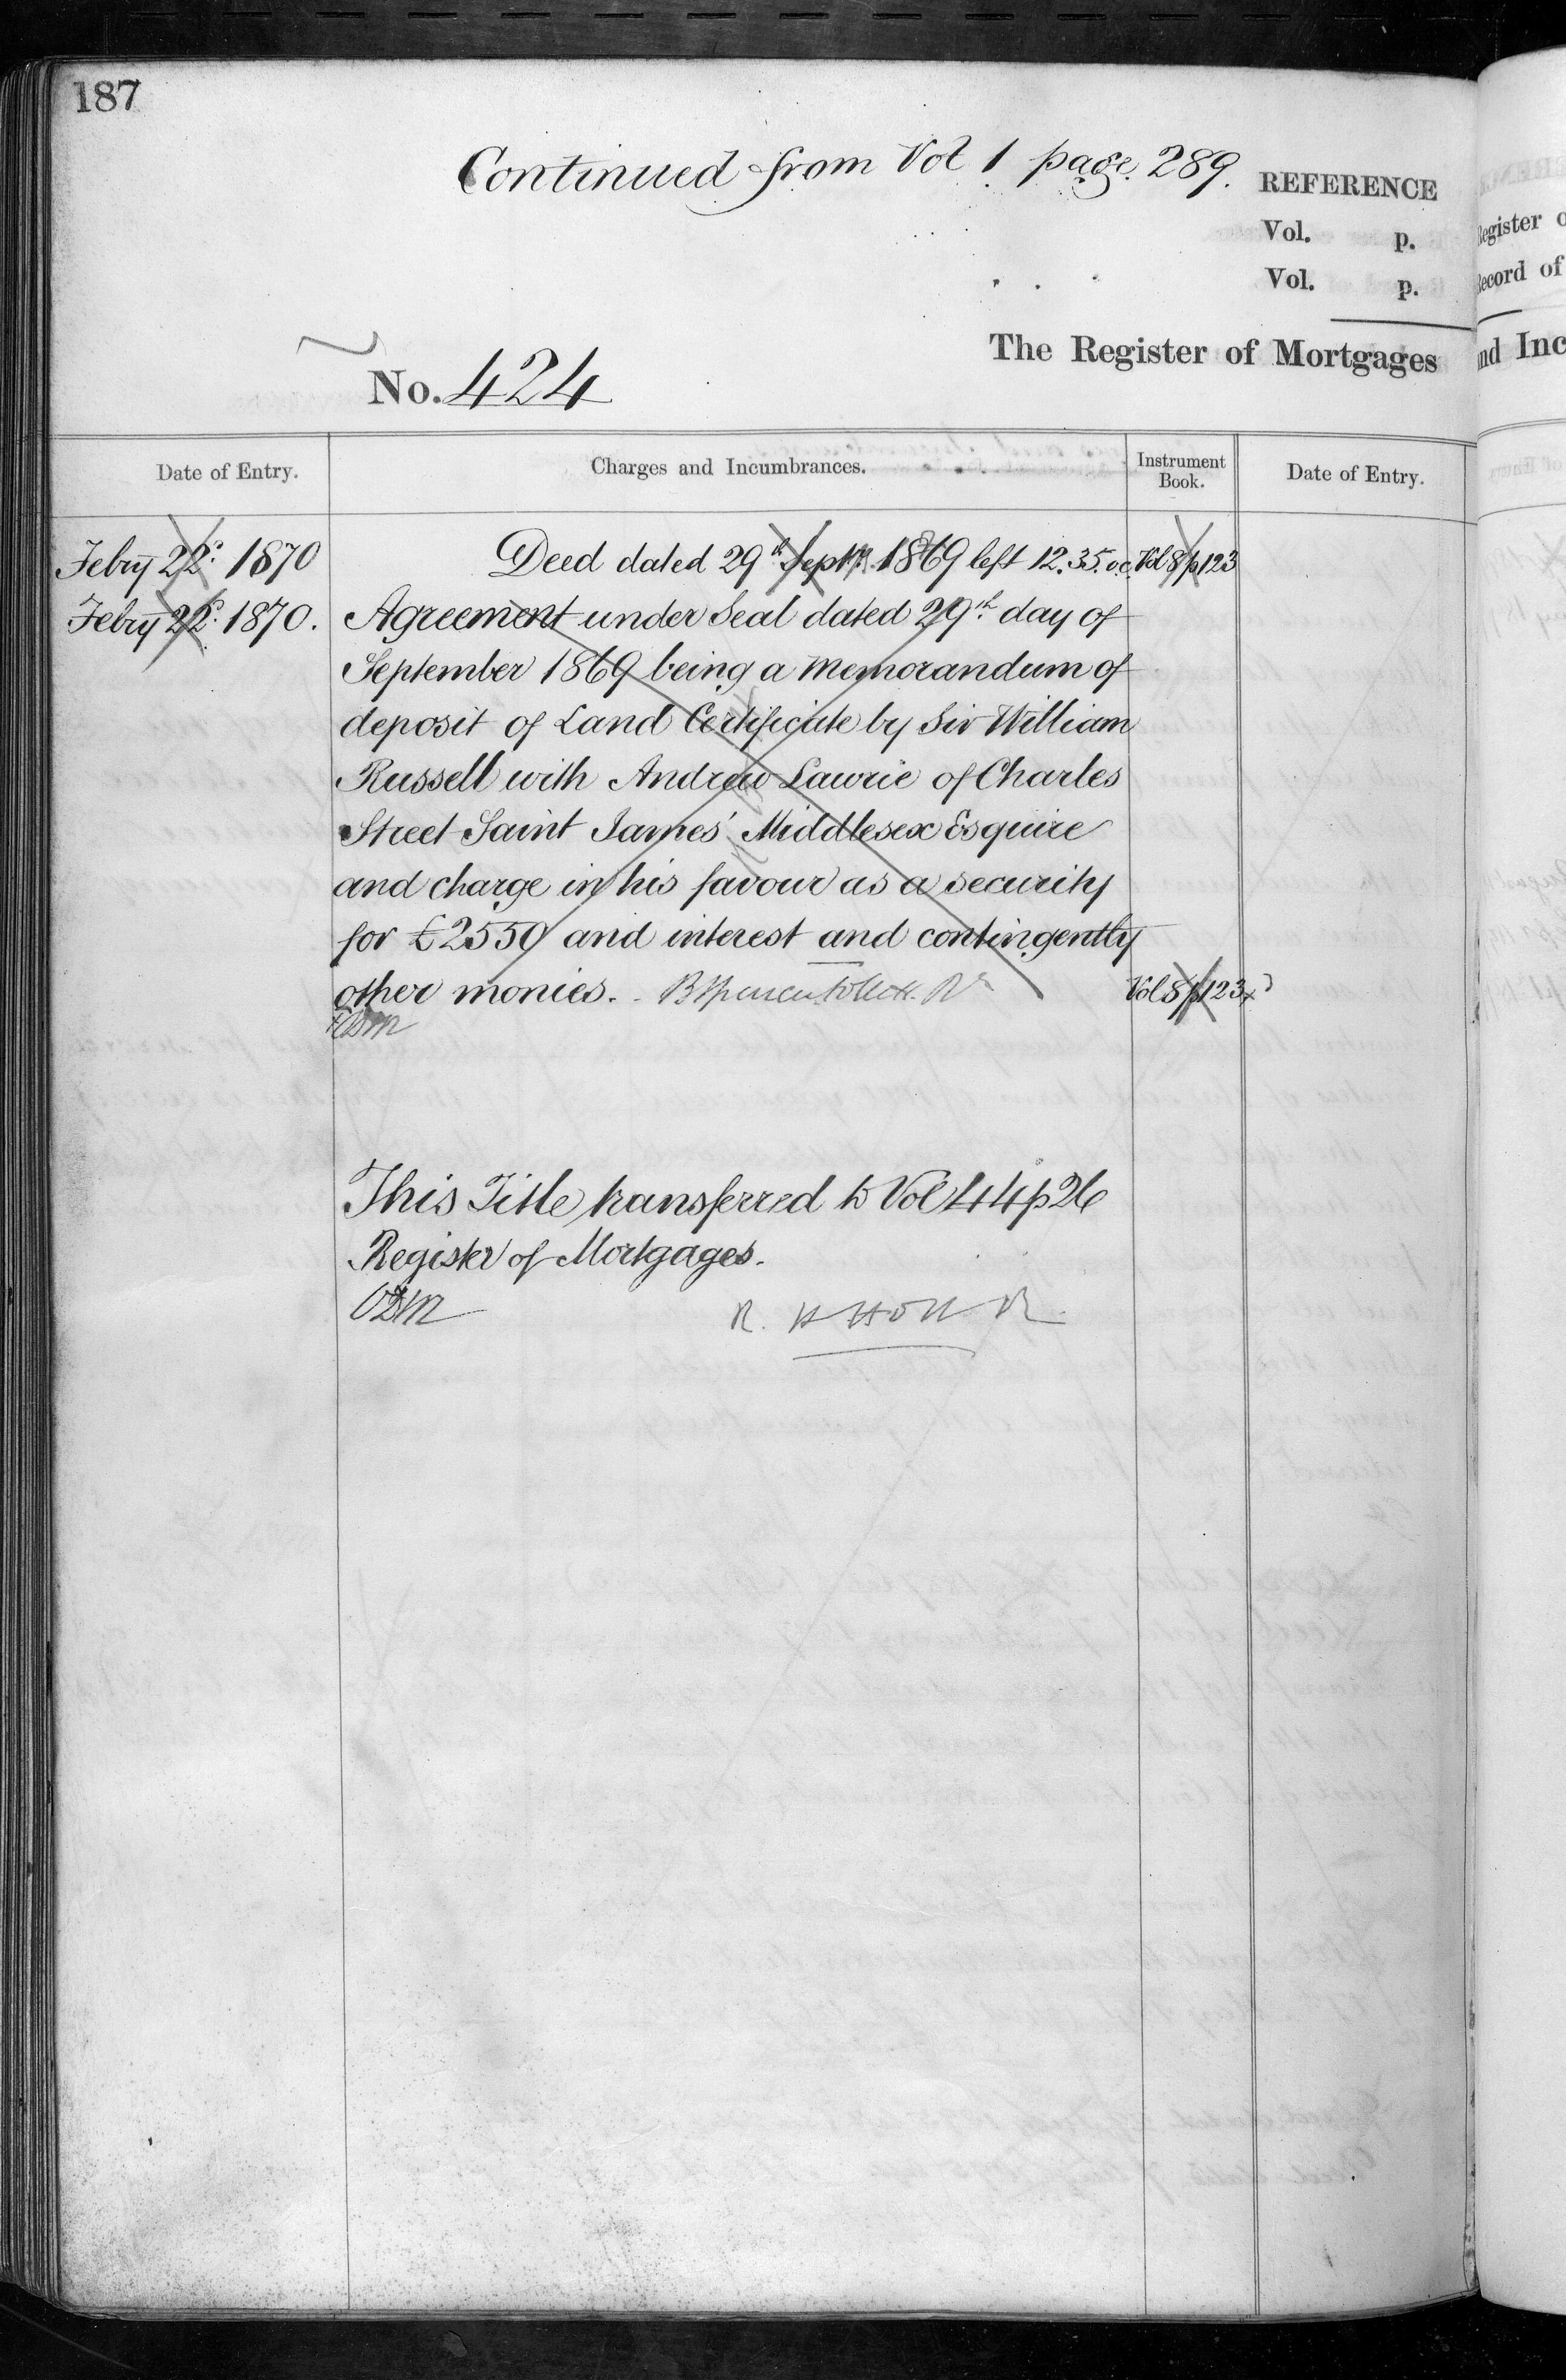 187
Continued from Vol 1 page 289.
REFERENCE
Vol. p.
Vol. p.
The Register of Mortgages
No. 424
Date of Entry.
Charges and Incumbrances.
Instrument Book.
Date of Entry.
Febry 22d. 1870 Deed dated 29th Septr. 1869 left 12.35. o.c. Vol 8 p 123
Febry 22d. 1870. Agreement under Seal dated 29th day of
September 1869 being a Memorandum of
deposit of Land Certificate by Sir William
Russell with Andrew Lawrie of Charles
Street Saint James' Middlesex Esquire
and charge in his favour as a security
for £2550 and interest and contingently
other monies. Vol 8 p 123
This Title transferred to Vol 44 p 26
Register of Mortgages.
R. H Holt R
egister o
ecord of
nd Inc